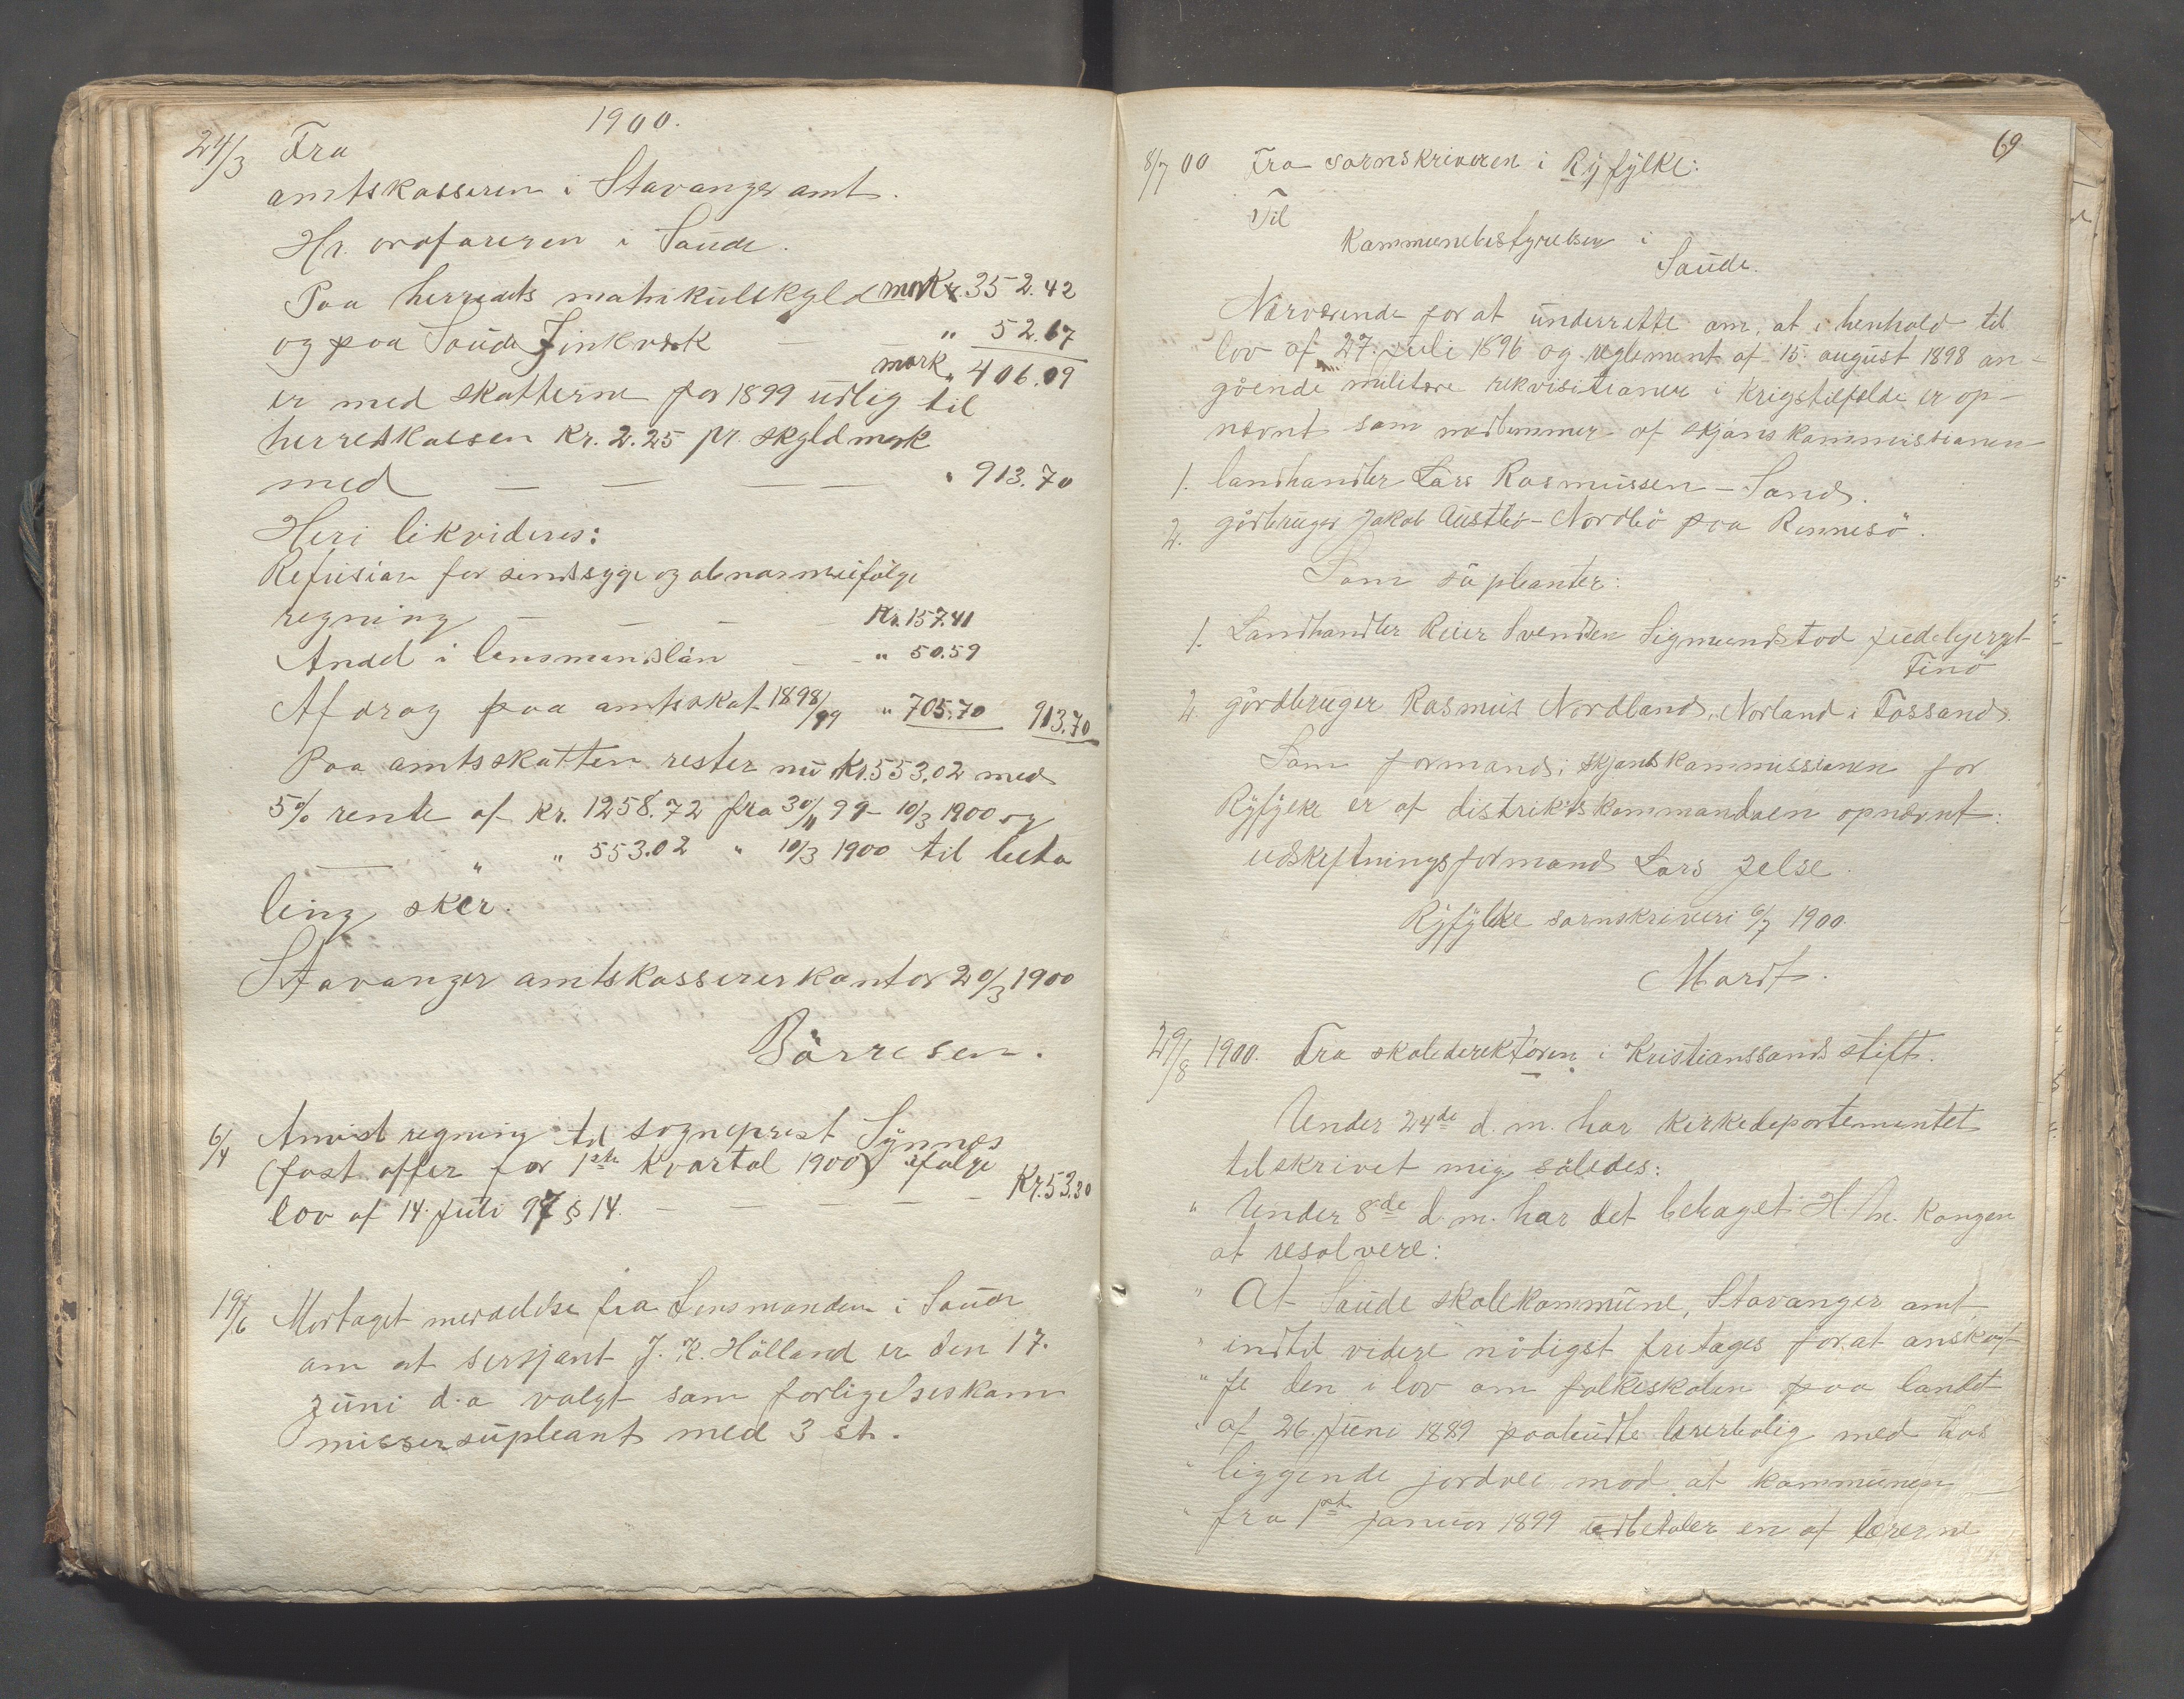 1900.
24/3 Fra
amtskasseren i Stavanger amt.
Hr. ordføreren i Saude.
Paa herredets matrikulskyld mark 352.42
og paa Saude Zinkværk — " 52.67
mark " 406.09
er med skatterne for 1899 udlig til
herredskassen Kr. 2.25 pr. skyldmark
med — — — — " 913.70
Heri likvideres:
Refusion for sindssyge og abnorme ifølge
regning — — — — Kr. 157.41
Andel i lensmandslån — - " 50.59
Afdrag paa amtsskat 1898/99 " 705.70 913.70
Paa amtsskatten rester nu Kr. 553.02 med
5% rente af Kr. 1258.72 fra 30/11 99 - 10/3 1900 og
— " " 553.02 " 10/3 1900 til beta
ling sker.
Stavanger amtskassererkontor 20/3 1900
Börresen.
6/4 Anvist regning til sogneprest Synnes
(fast offer for 1ste kvartal 1900) ifølge
lov af 14. juli 97 § 14. — — — - Kr. 53.30
19/6 Mottaget meddelelse fra Lensmanden i Saude
om at sersjant J. K. Hölland er den 17.
juni d.a valgt som forligelseskom
missersupleant med 3 st.
69
8/7 00 Fra sorenskriveren i Ryfylke:
Til
Kommunebestyrelsen i
Saude.
Nærværende for at underrette om, at i henhold til
lov af 27. juli 1896 og reglement af 15. august 1898 an-
gående militære rekvisitioner i krigstilfælde er op-
nævnt som medlemmer af skjønskommissionen
1. landhandler Lars Rasmussen - Sand.
2. gårdbruger Jakob Austbö - Nordbö paa Rennesö.
Som supleanter:
1. Landhandler Reier Svendsen Sigmundstad Judebjerget
Finö
2. gårdbruger Rasmus Nordland, Norland i Fossand.
Som formand i skjønskommissionen for
Ryfylke er af distriktskommandoen opnævnt:
udskiftningsformand Lars Jelse.
Ryfylke sorenskriveri 6/7 1900.
29/8 1900. Fra skoledirektören i Kristianssands stift.
Under 24de d.m. har kirkedepartementet
tilskrivet mig således:
" Under 8de d.m. har det behaget H. M. Kongen
at resolvere:
" At Saude skolekommune, Stavanger amt,
" indtil videre nödigst fritages for at anskaf-
" fe den i lov om folkeskolen paa landet
" af 26. juni 1889 paabudte lærerbolig med hos
" liggende jordvei mod at kommunen
" fra 1ste januar 1899 udbetaler en af lærerne